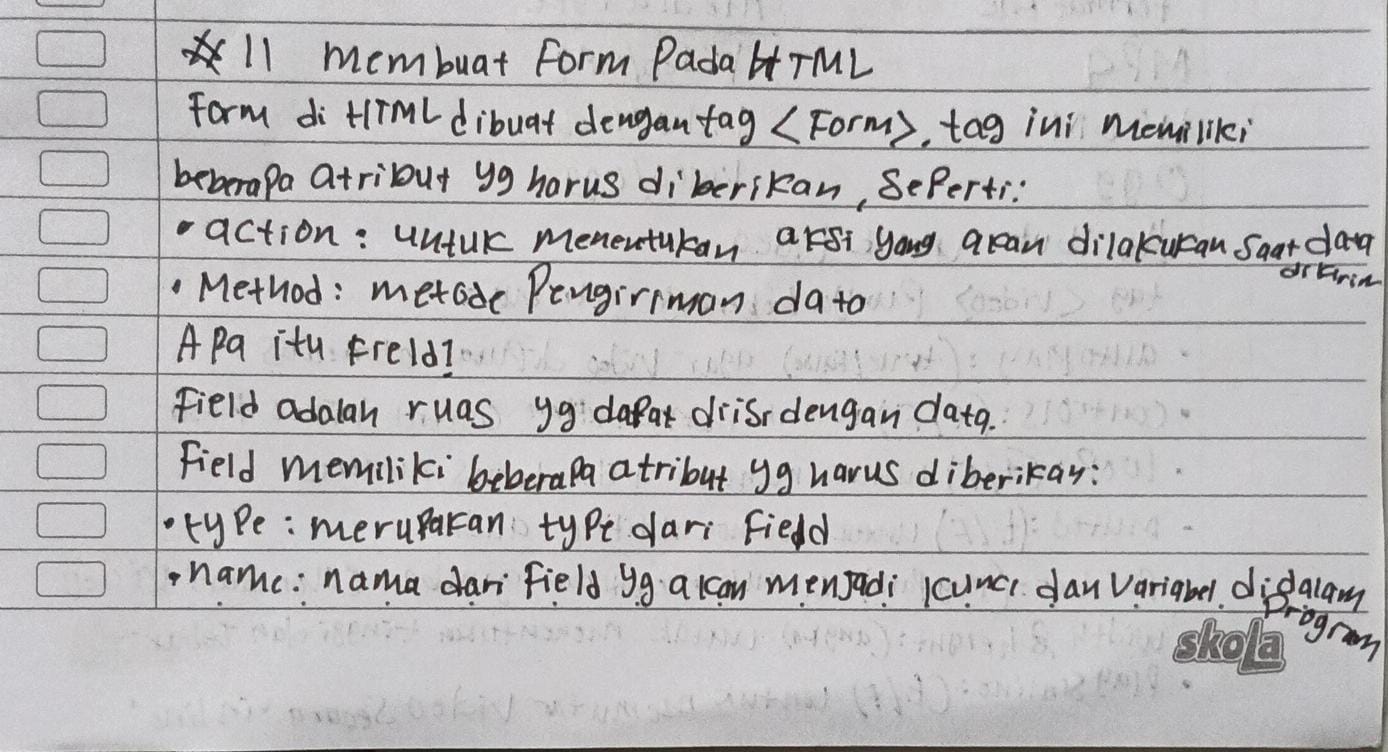 #11 Membuat Form Pada HTML
Form di HTML dibuat dengan tag <Form>, tag ini memiliki
beberapa atribut yg harus diberikan, Seperti:
• action: untuk menentukan aksi yang akan dilakukan saat data dikirim
• Method: metode Pengiriman data
Apa itu Field?
Field adalah ruas yg dapat diisi dengan data.
Field memiliki beberapa atribut yg harus diberikan:
• type: merupakan type dari Field
• name: nama dari Field yg akan menjadi kunci dan Variabel didalam Program
skola